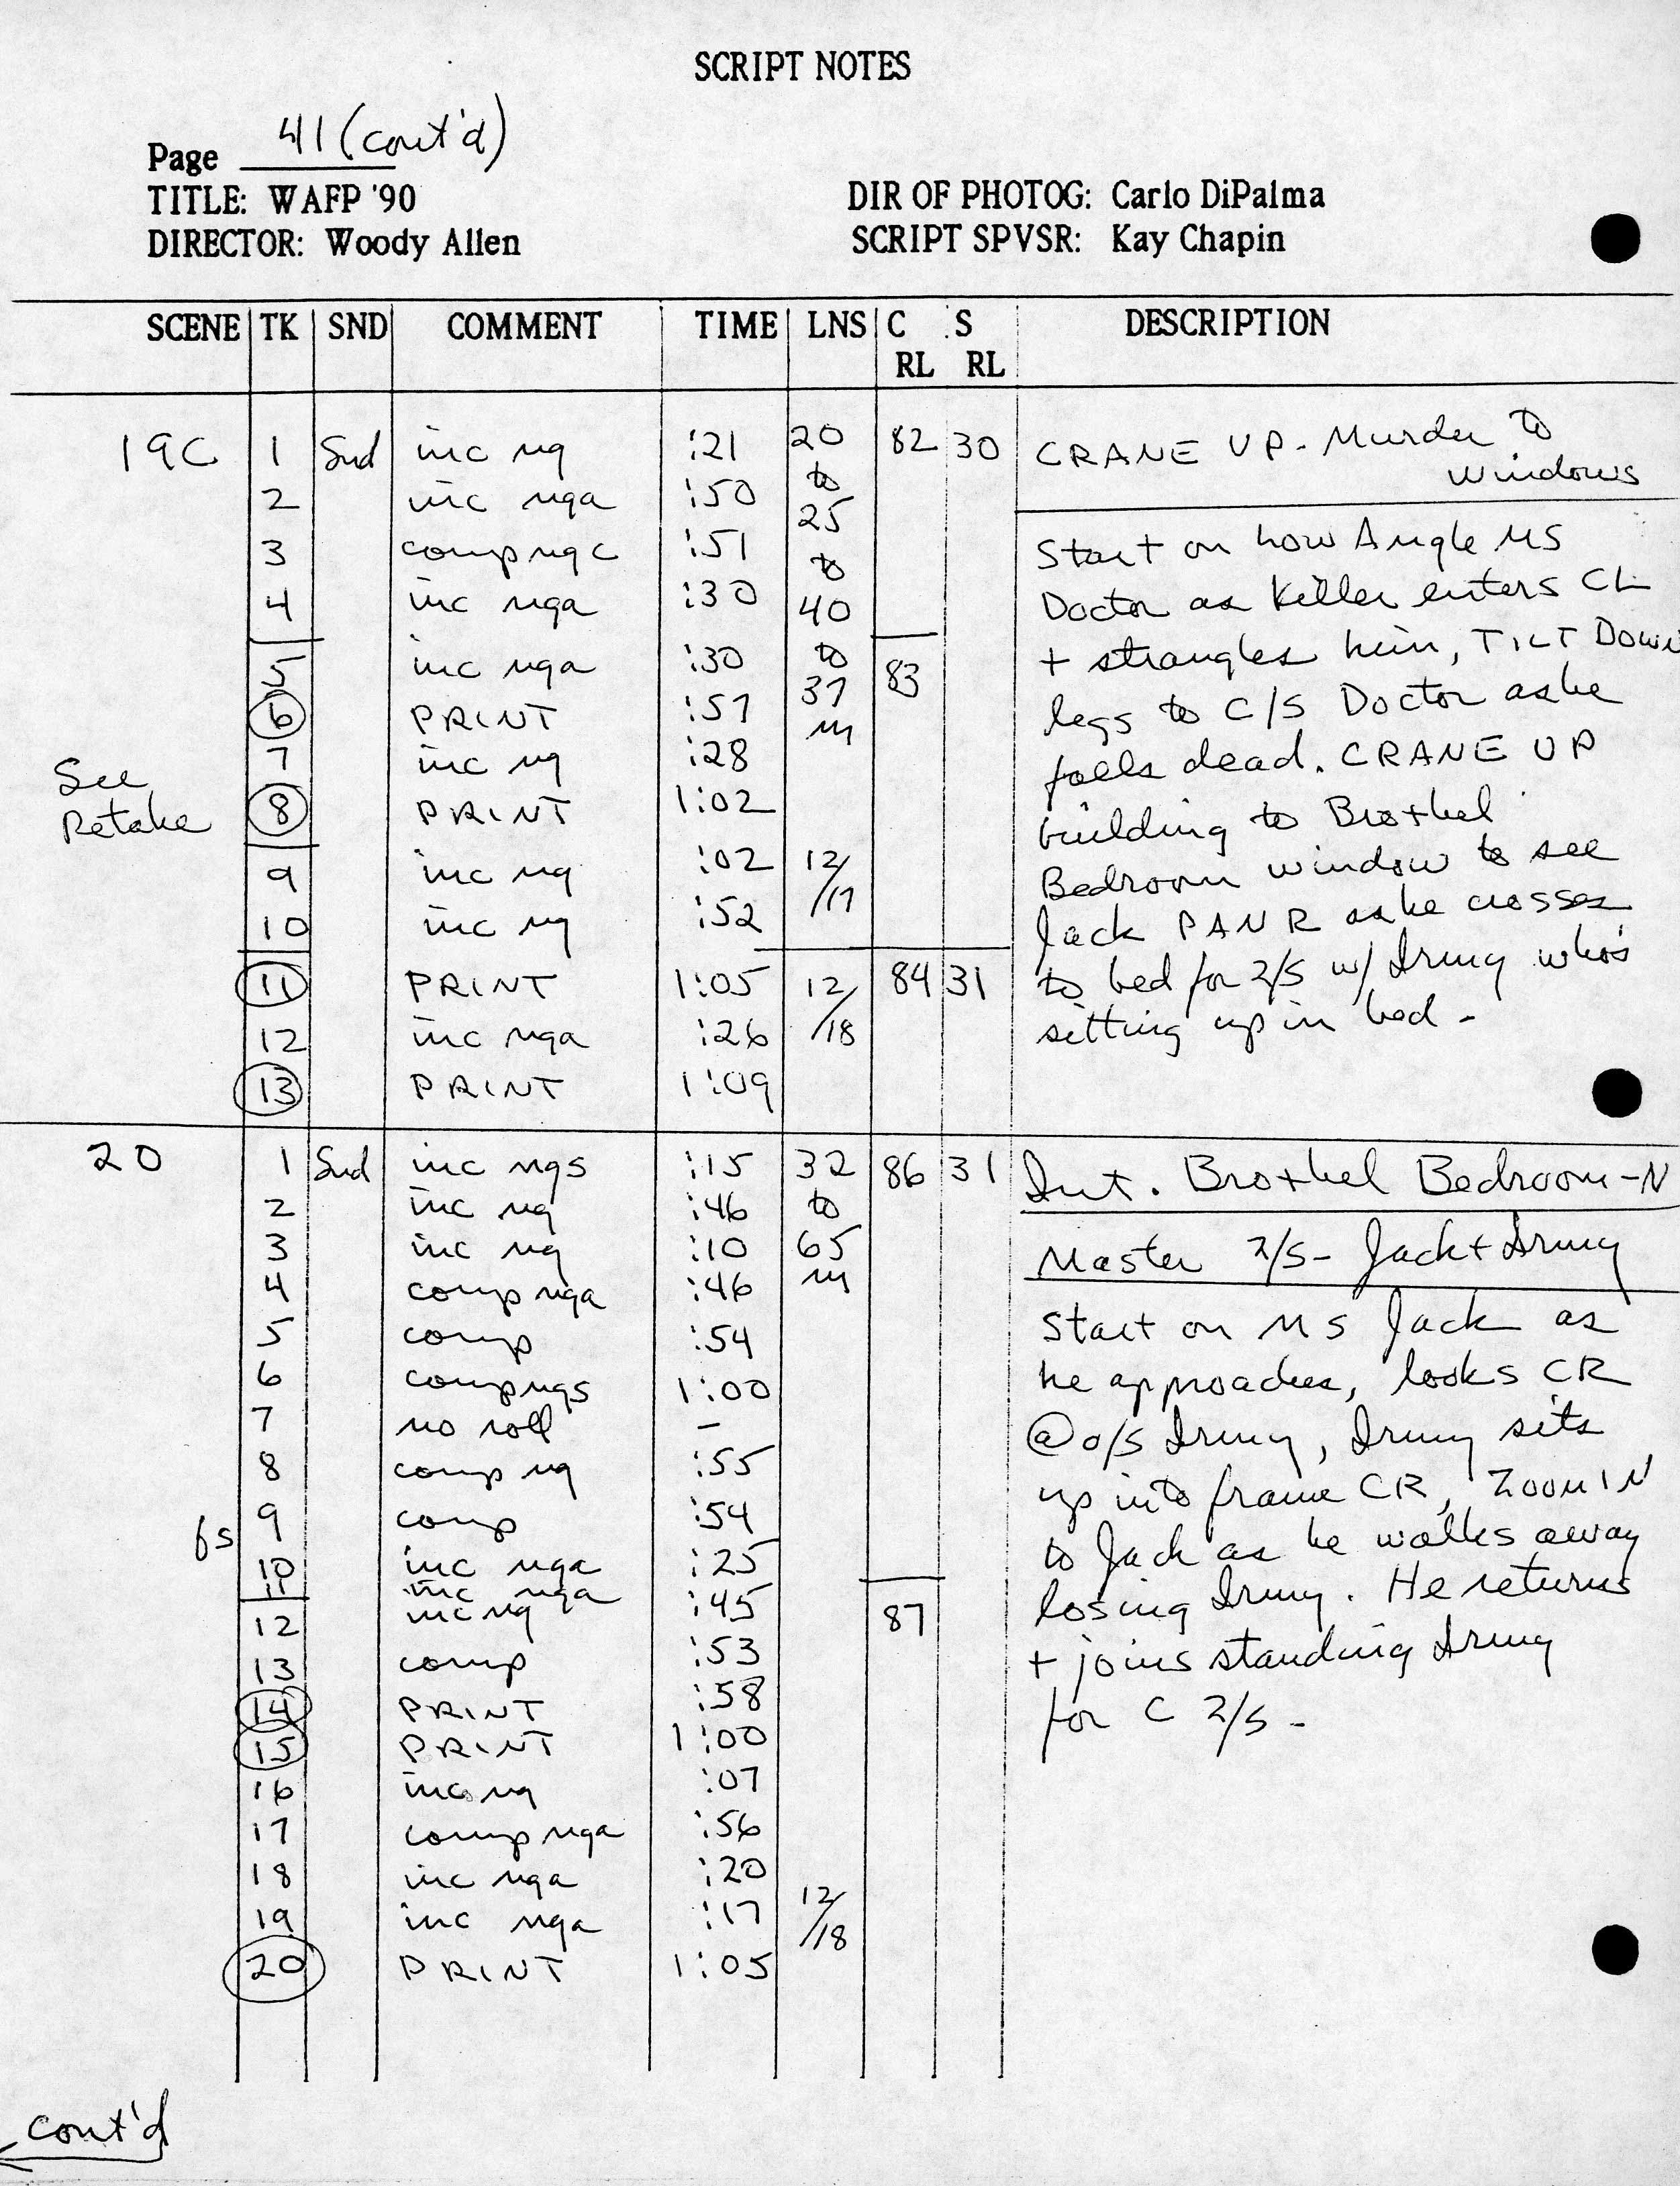 SCRIPT NOTES
Page 41 (cont'd)
TITLE: WAFP '90
DIRECTOR: Woody Allen
DIR OF PHOTOG: Carlo DiPalma
SCRIPT SPVSR: Kay Chapin
SCENE TK SND COMMENT TIME LNS C RL S RL DESCRIPTION
19C 1 Snd inc ng :21 20 82 30 CRANE UP - Murder to
Windows
2 inc nga :50 to
25
3 comp ngc :51 to Start on Low Angle MS
4 inc nga :30 40 Doctor as Killer enters CL
5 inc nga :30 to 83 + strangles him, TILT DOWN
37
6 PRINT :57 m legs to C/S Doctor as he
7 inc ng :28 falls dead. CRANE UP
See
Retake 8 PRINT 1:02 building to Brothel
9 inc ng :02 12/17 Bedroom window to see
10 inc ng :52 Jack PAN R as he crosses
11 PRINT 1:05 12/18 84 31 to bed for 2/S w/ Irmy who's
12 inc nga :26 sitting up in bed -
13 PRINT 1:09
20 1 Snd inc ngs :15 32 86 31 Int. Brothel Bedroom-N
2 inc ng :46 to
3 inc ng :10 65 Master 2/S - Jack + Irmy
4 comp nga :46 m
5 comp :54 Start on MS Jack as
6 comp ngs 1:00 he approaches, looks CR
7 no roll - @ o/s Irmy, Irmy sits
8 comp ng :55 up into frame CR, ZOOM IN
fs 9 comp :54 to Jack as he walks away
10 inc nga :25
11 inc nga
12 inc ng :45 87 losing Irmy. He returns
13 comp :53 + joins standing Irmy
14 PRINT :58 for C 2/S -
15 PRINT 1:00
16 inc ng :07
17 comp nga :56
18 inc nga :20
19 inc nga :17 12/18
20 PRINT 1:05
cont'd